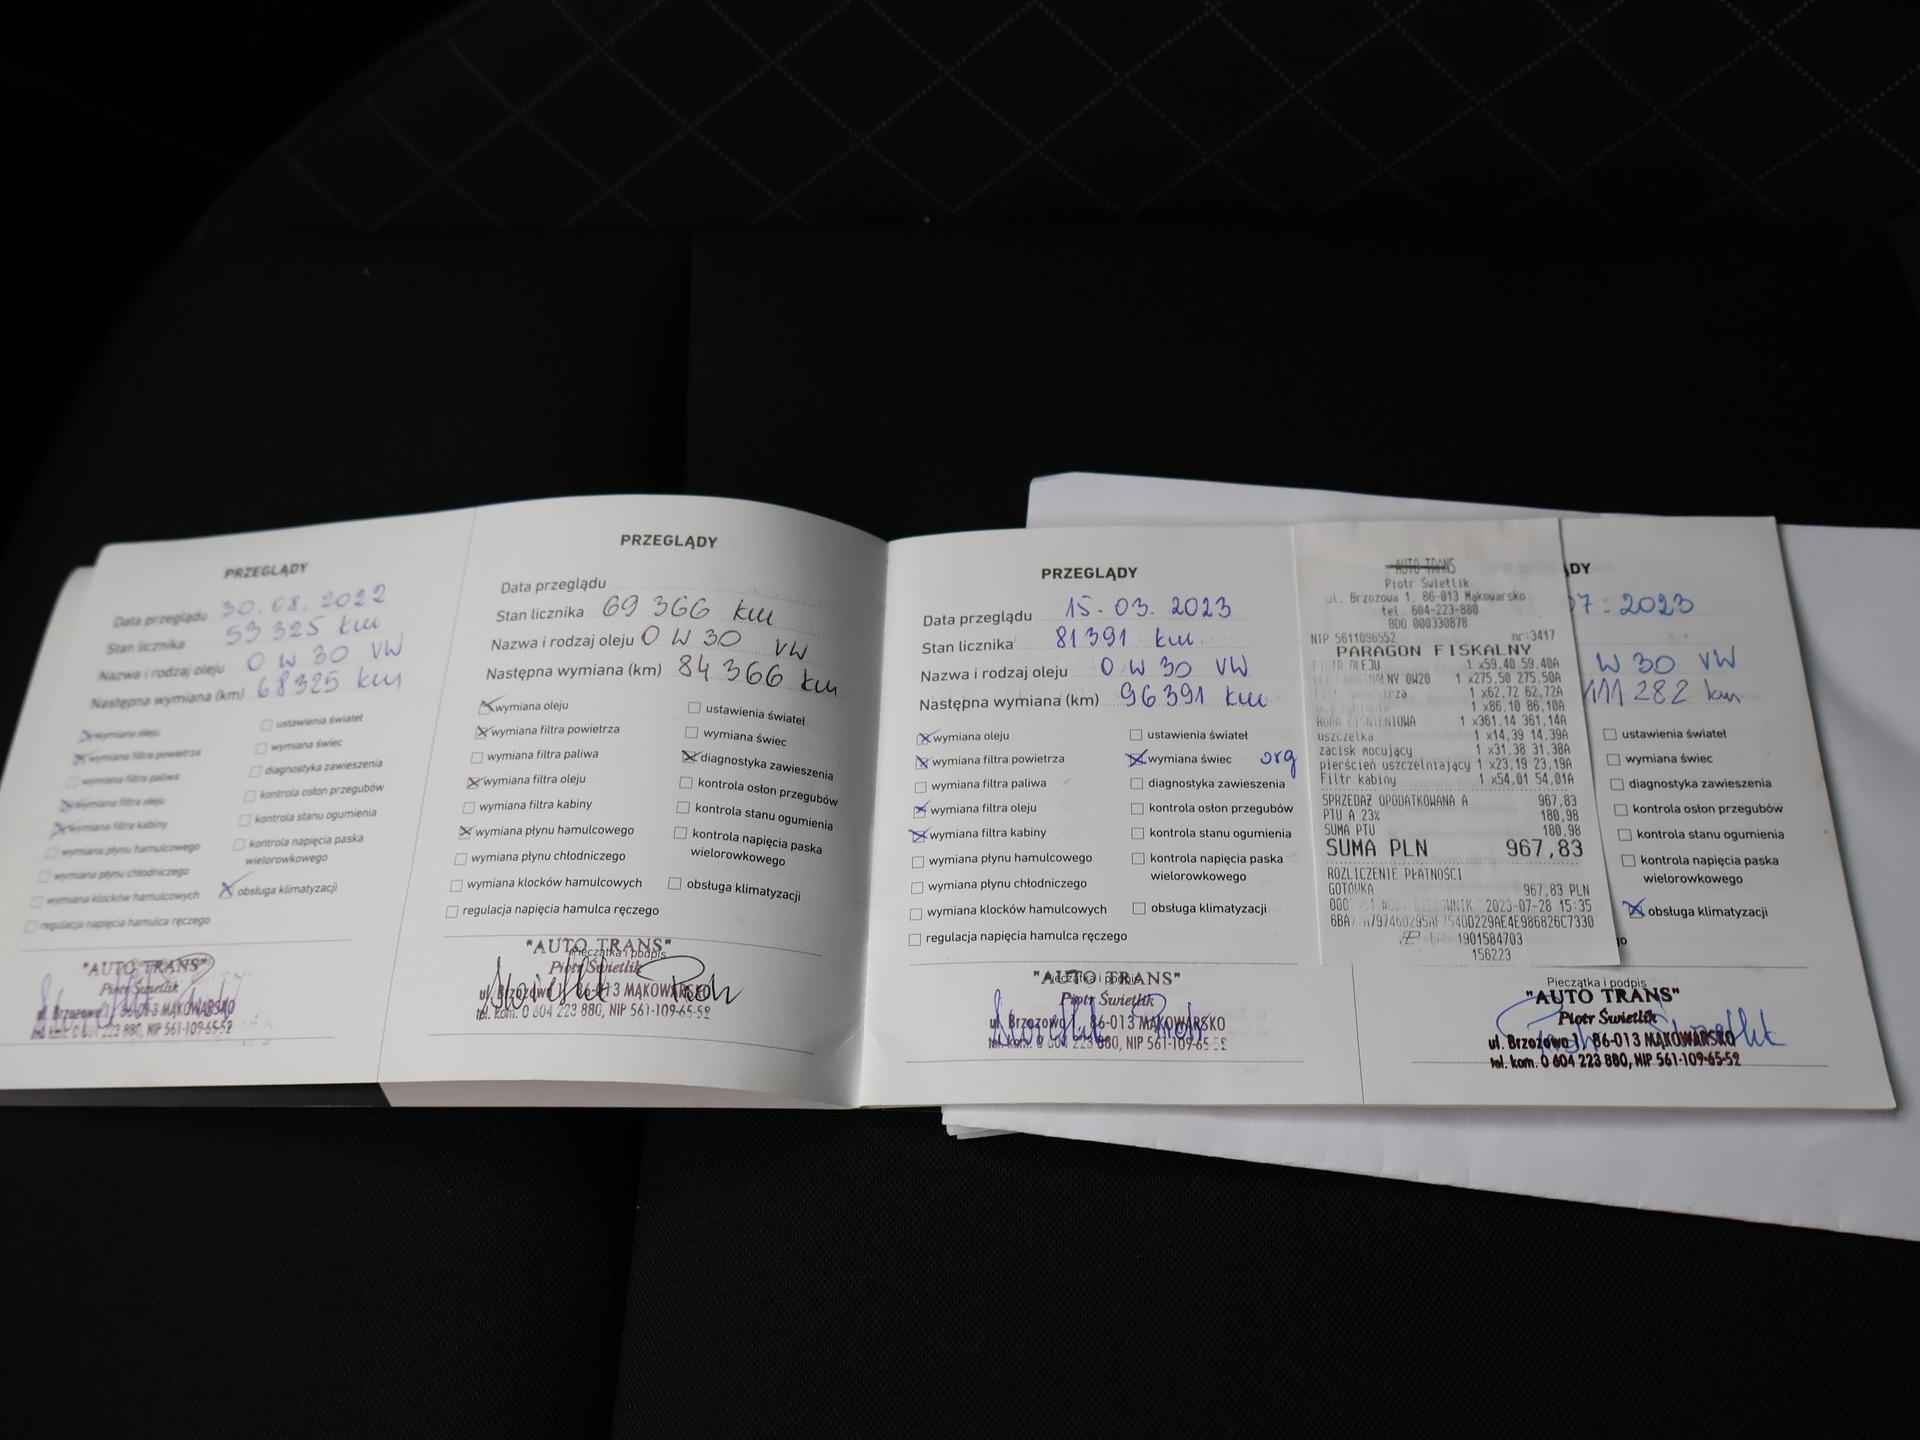 PRZEGLĄDY
Data przeglądu 30.08.2022
Stan licznika 53 325 km
Nazwa i rodzaj oleju 0 W 30 VW
Następna wymiana (km) 68325 km
wymiana oleju
wymiana filtra powietrza
wymiana filtra paliwa
wymiana filtra oleju
wymiana filtra kabiny
wymiana płynu hamulcowego
wymiana płynu chłodniczego
wymiana klocków hamulcowych
regulacja napięcia hamulca ręcznego
ustawienia świateł
wymiana świec
diagnostyka zawieszenia
kontrola osłon przegubów
kontrola stanu ogumienia
kontrola napięcia paska
wielorowkowego
obsługa klimatyzacji
"AUTO TRANS"
Piotr Świetlik
ul. Brzozowa 1, 86-013 MĄKOWARSKO
tel. kom. 0 604 223 880, NIP 561-109-65-52
PRZEGLĄDY
Data przeglądu
Stan licznika 69 366 km
Nazwa i rodzaj oleju 0 W 30 VW
Następna wymiana (km) 84 366 km
wymiana oleju
wymiana filtra powietrza
wymiana filtra paliwa
wymiana filtra oleju
wymiana filtra kabiny
wymiana płynu hamulcowego
wymiana płynu chłodniczego
wymiana klocków hamulcowych
regulacja napięcia hamulca ręczego
ustawienia świateł
wymiana świec
diagnostyka zawieszenia
kontrola osłon przegubów
kontrola stanu ogumienia
kontrola napięcia paska
wielorowkowego
obsługa klimatyzacji
"AUTO TRANS"
Pieczątka i podpis
Piotr Świetlik
ul. Brzozowa 86-013 MĄKOWARSKO
tel. kom. 0 604 223 880, NIP 561-109-65-52
PRZEGLĄDY
Data przeglądu 15.03.2023
Stan licznika 81 391 km
Nazwa i rodzaj oleju 0 W 30 VW
Następna wymiana (km) 96 391 km
wymiana oleju
wymiana filtra powietrza
wymiana filtra paliwa
wymiana filtra oleju
wymiana filtra kabiny
wymiana płynu hamulcowego
wymiana płynu chłodniczego
wymiana klocków hamulcowych
regulacja napięcia hamulca ręczego
ustawienia świateł
wymiana świec org
diagnostyka zawieszenia
kontrola osłon przegubów
kontrola stanu ogumienia
kontrola napięcia paska
wielorowkowego
obsługa klimatyzacji
"AUTO TRANS"
Piotr Świetlik
ul. Brzozowa 86-013 MĄKOWARSKO
tel. kom. 0 604 223 880, NIP 561-109-65-52
AUTO-TRANS
Piotr Świetlik
ul. Brzozowa 1, 86-013 Mąkowarsko
tel. 604-223-880
BDO 000330878
NIP 5611096552 nr:3417
PARAGON FISKALNY
OLEJU 1 x59,40 59,40A
0W20 1 x275,50 275,50A
1 x62,72 62,72A
1 x86,10 86,10A
1 x361,14 361,14A
uszczelka 1 x14,39 14,39A
zacisk mocujący 1 x31,38 31,38A
pierścień uszczelniający 1 x23,19 23,19A
Filtr kabiny 1 x54,01 54,01A
SPRZEDAŻ OPODATKOWANA A 967,83
PTU A 23% 180,98
SUMA PTU 180,98
SUMA PLN 967,83
ROZLICZENIE PŁATNOŚCI
GOTÓWKA 967,83 PLN
2023-07-28 15:35
1901584703
156223
DY
07.2023
W 30 VW
111 282 km
ustawienia świateł
wymiana świec
diagnostyka zawieszenia
kontrola osłon przegubów
kontrola stanu ogumienia
kontrola napięcia paska
wielorowkowego
obsługa klimatyzacji
Pieczątka i podpis
"AUTO TRANS"
Piotr Świetlik
ul. Brzozowa 1, 86-013 MĄKOWARSKO
tel. kom. 0 604 223 880, NIP 561-109-65-52